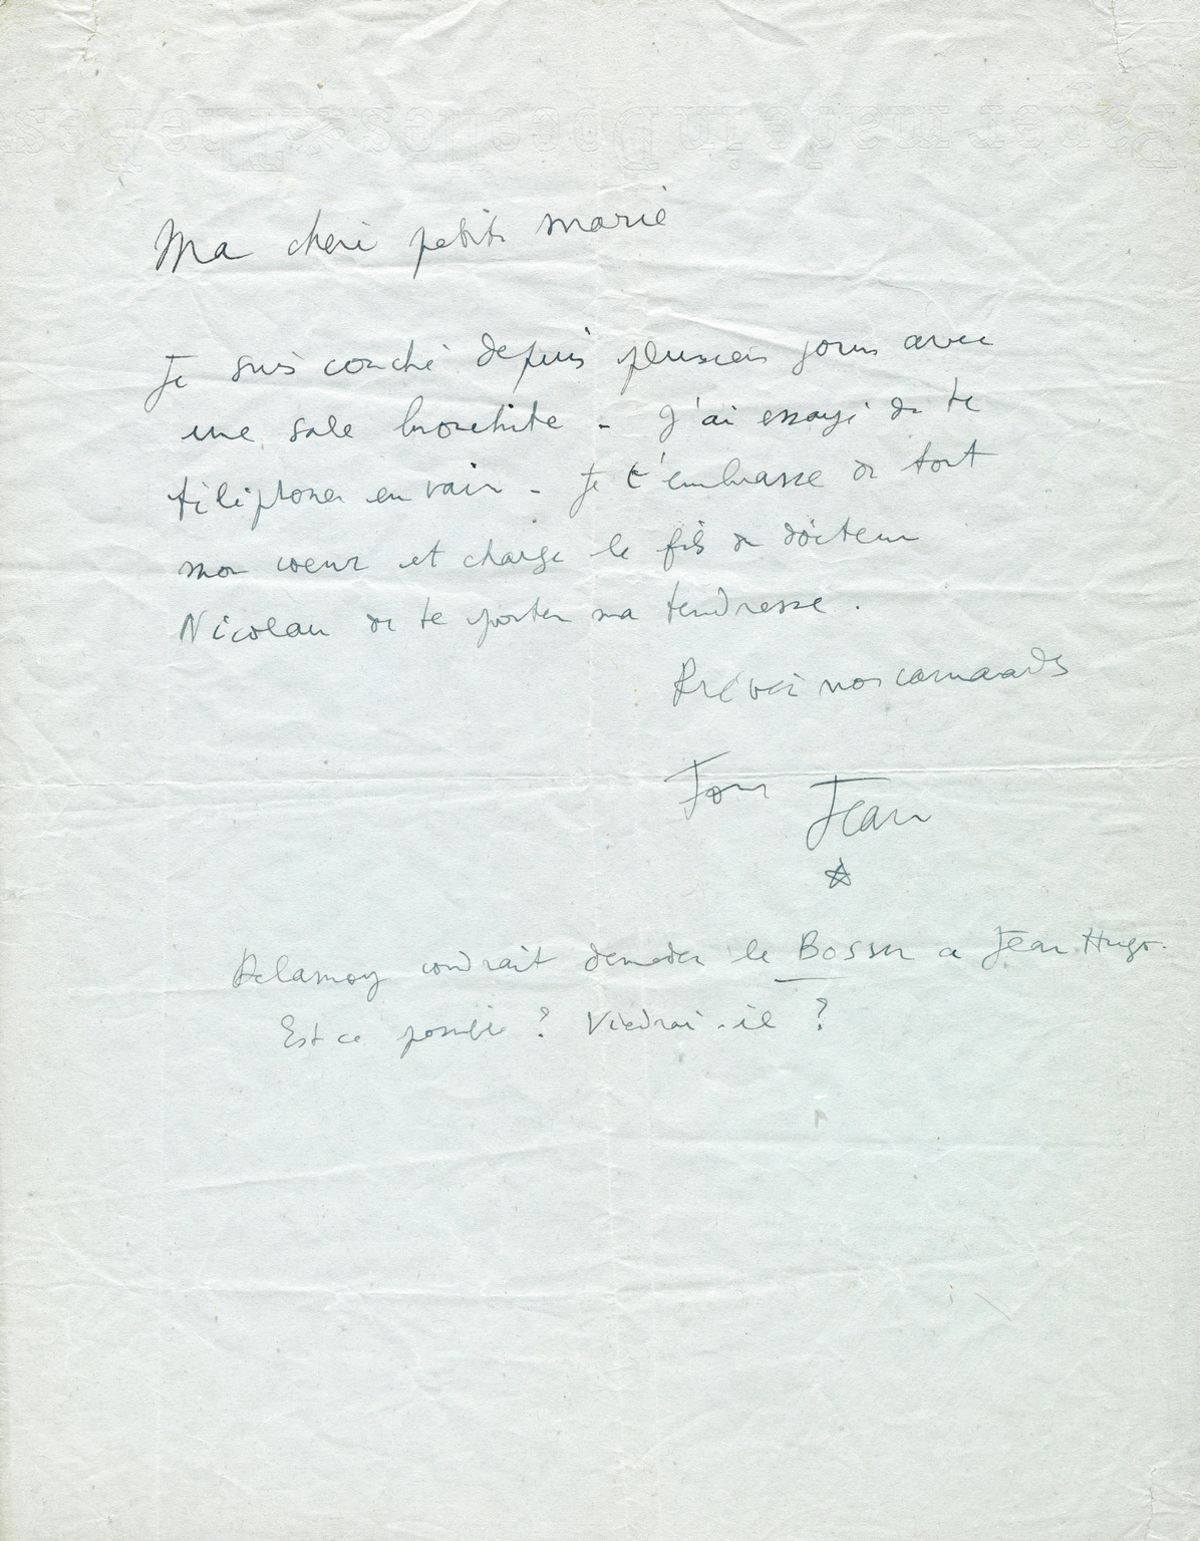 Ma cheri petite marie
Je suis couché depuis plusieurs jours avec
une sale bronchite - J'ai essayé de te
téléphoner en vain - Je t'embrasse de tout
mon coeur et charge le fils du docteur
Nicolau de te porter ma tendresse.
nos camarads
Ton Jean
Delannoy voudrait demander le Bossu a Jean Hugo.
Est ce possible ? Viedrai-il ?